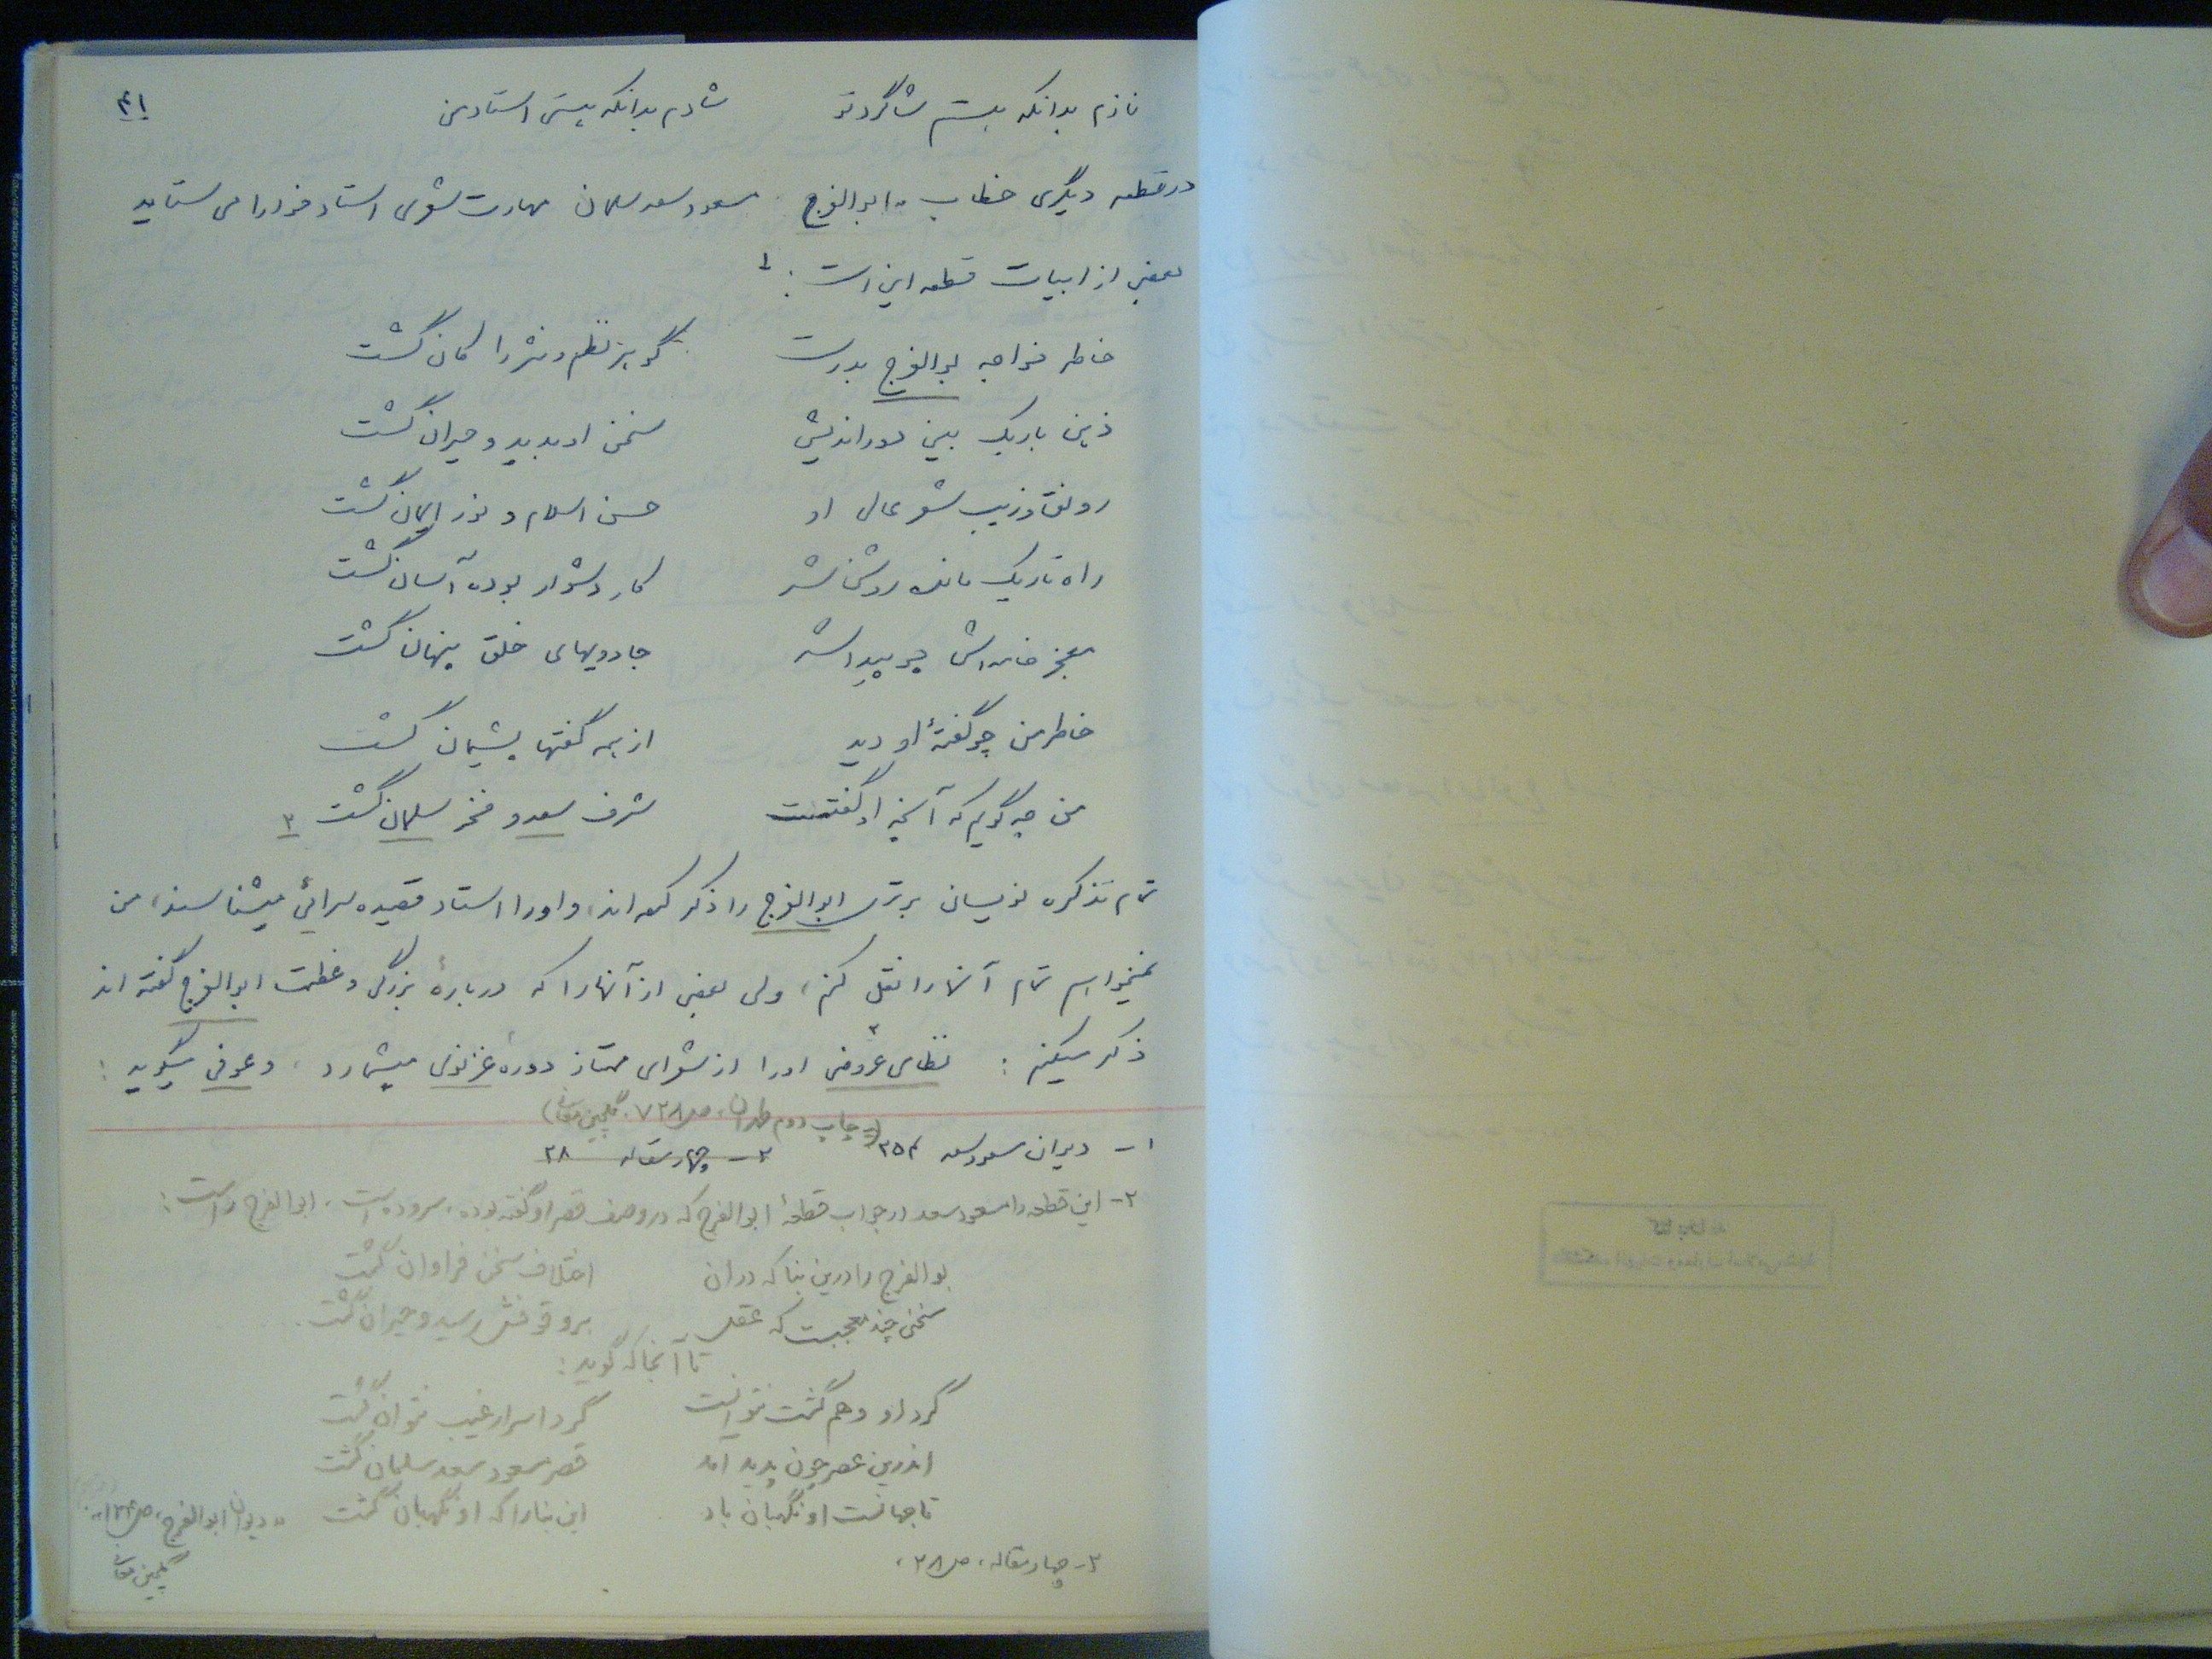 ۴۱
نازم بدانکه هستم شاگرد تو شادم بدانکه هستی استاد من
در قطعه دیگری خطاب به ابوالفرج مسعود سعد سلمان مهارت شعری استاد خود را می ستاید
بعضی از ابیات قطعه این است : ۱
خاطر خواجه بوالفرج بدرست گوهر نظم و نثر را کان گشت
ذهن باریک بین دوراندیش سخن او بدید و حیران گشت
رونق و زیب شعر عالی او حسن اسلام و نور ایمان گشت
راه تاریک مانده روشن شد کار دشوار بوده آسان گشت
معجز خامه اش چو پیدا شد جادویهای خلق پنهان گشت
خاطر من چو گفتهٔ او دید از همه گفتها پشیمان گشت
من چه گویم که آنچه او گفتست شرف سعد و فخر سلمان گشت ۲
تمام تذکره نویسان برتری ابوالفرج را ذکر کرده اند، و او را استاد قصیده سرائی میشناسند، من
نمیخواهم تمام آنها را نقل کنم، ولی بعضی از آنها را که دربارهٔ بزرگی و عظمت ابوالفرج گفته اند
ذکر میکنم : نظامی عروضی ۳ او را از شعرای ممتاز دورهٔ غزنوی میشمارد ، و عوفی میگوید :
(= چاپ دوم طهران، ص ۷۲۸، گلچین معانی)
۱- دیوان مسعود سعد ۲۵۴ ۲- چهار مقاله ۲۸
۲- این قطعه را مسعود سعد در جواب قطعهٔ ابوالفرج که در وصف قصر او گفته بوده، سروده است، ابوالفرج راست :
بوالفرج را درین بنا که در آن اختلاف سخن فراوان گشت
سخنی چند معجبست که عقل بر وقوفش رسید و حیران گشت
تا آنجا که گوید :
گرد او وهم گشت نتوانست گرد اسرار غیب نتوان گشت
اندرین عصر چون پدید آمد قصر مسعود سعد سلمان گشت
تا جهانست او نگهبان باد این بنا را که او نگهبان گشت «دیوان ابوالفرج، ص
گلچین معانی
۳- چهار مقاله، ص ۲۸،